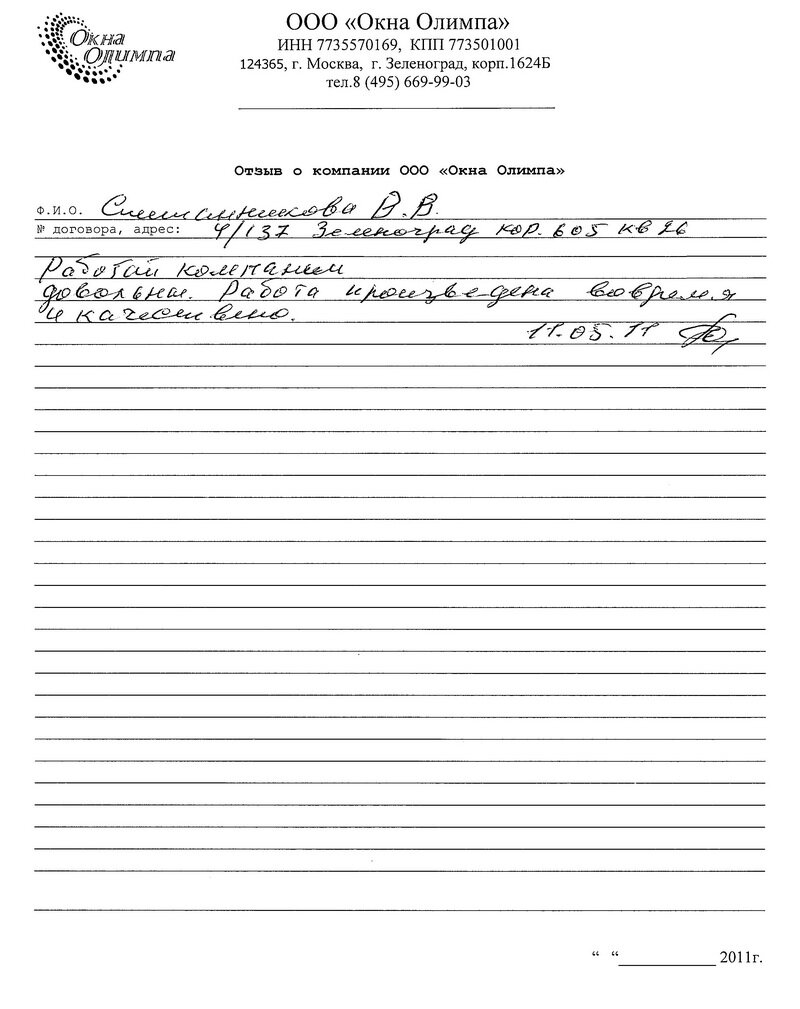 Окна
Олимпа
ООО «Окна Олимпа»
ИНН 7735570169, КПП 773501001
124365, г. Москва, г. Зеленоград, корп.1624Б
тел.8 (495) 669-99-03
Отзыв о компании ООО «Окна Олимпа»
Ф.И.О. В.В.
№ договора, адрес: 4/137 Зеленоград кор. 605 кв 26
Работой компании
довольны. Работа произведена вовремя
и качественно.
11.05.11
“ “____________ 2011г.